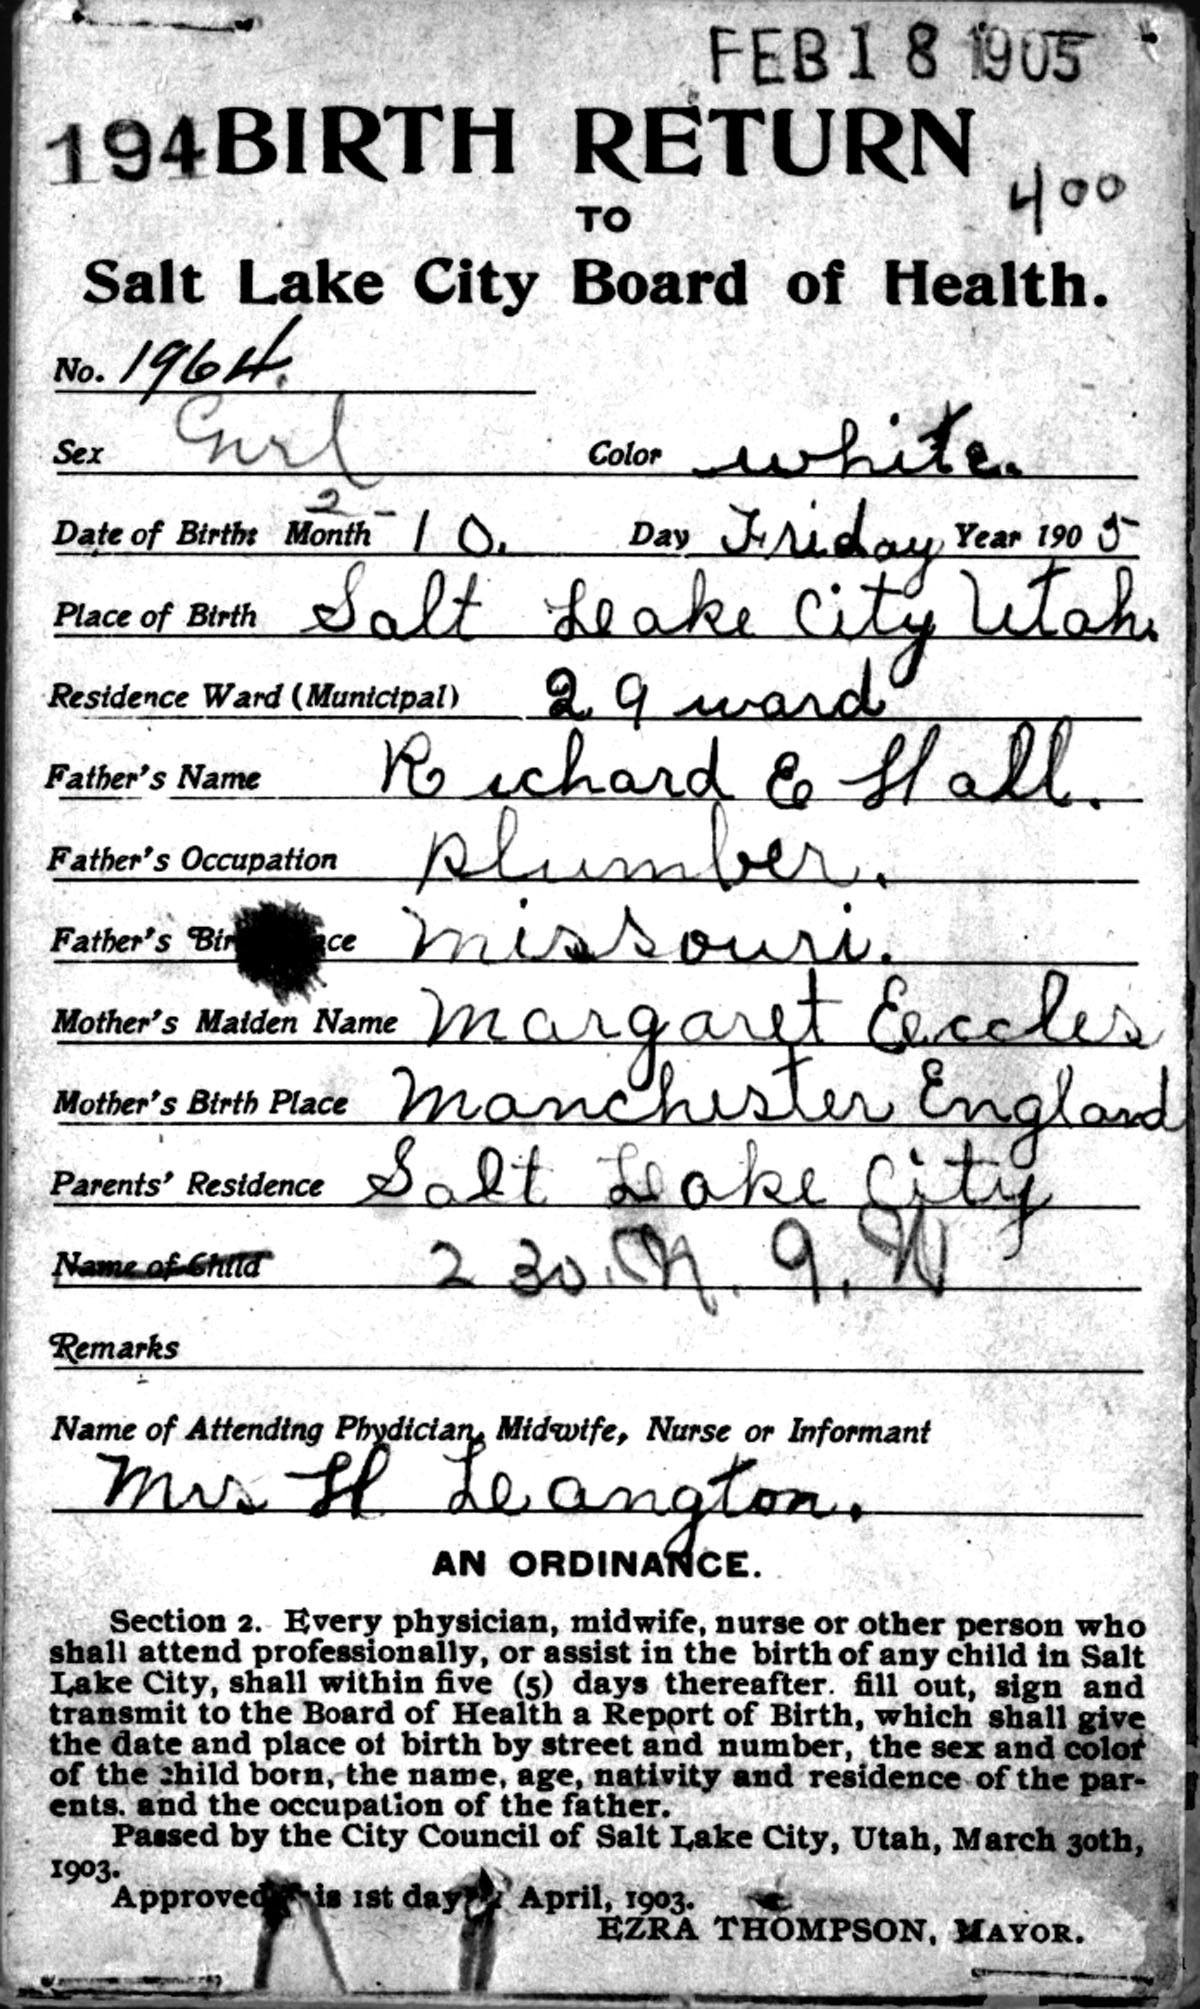 FEB 18 1905
194 BIRTH RETURN
400
TO
Salt Lake City Board of Health.
No. 1964.
Sex Girl Color white.
Date of Birth: Month 2 - 10. Day Friday Year 1905
Place of Birth Salt Leake City Utah.
Residence Ward (Municipal) 29 ward
Father's Name Richard E Hall.
Father's Occupation plumber.
Father's Bir ce Missouri.
Mother's Maiden Name Margaret Eccles
Mother's Birth Place Manchester England
Parents' Residence Salt Leake City
Name of Child 230. N. 9. W
Remarks
Name of Attending Phydician, Midwife, Nurse or Informant
Mrs H Leangton.
AN ORDINANCE.
Section 2. Every physician, midwife, nurse or other person who
shall attend professionally, or assist in the birth of any child in Salt
Lake City, shall within five (5) days thereafter. fill out, sign and
transmit to the Board of Health a Report of Birth, which shall give
the date and place of birth by street and number, the sex and color
of the child born, the name, age, nativity and residence of the par-
ents. and the occupation of the father.
Passed by the City Council of Salt Lake City, Utah, March 30th,
1903.
Approved is 1st day April, 1903.
EZRA THOMPSON, MAYOR.